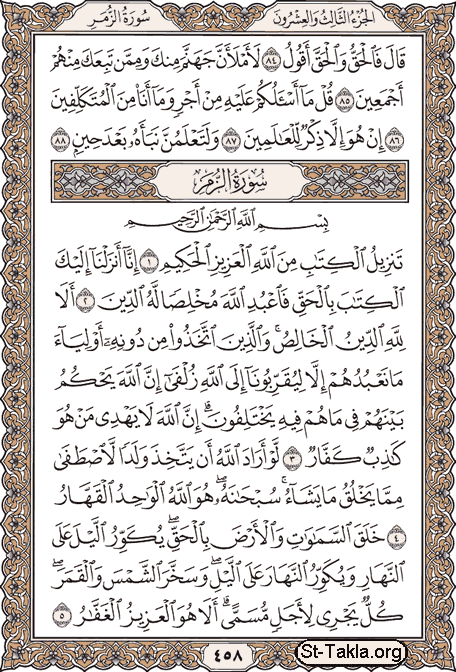 سُورَةُ الزُّمَر الجُزْءُ الثَّالِثُ وَالعِشْرُونَ
قَالَ فَٱلْحَقُّ وَٱلْحَقَّ أَقُولُ ٨٤ لَأَمْلَأَنَّ جَهَنَّمَ مِنكَ وَمِمَّن تَبِعَكَ مِنْهُمْ
أَجْمَعِينَ ٨٥ قُلْ مَآ أَسْـَٔلُكُمْ عَلَيْهِ مِنْ أَجْرٍ وَمَآ أَنَا۠ مِنَ ٱلْمُتَكَلِّفِينَ
٨٦ إِنْ هُوَ إِلَّا ذِكْرٌ لِّلْعَـٰلَمِينَ ٨٧ وَلَتَعْلَمُنَّ نَبَأَهُۥ بَعْدَ حِينٍۭ ٨٨
سُورَةُ الزُّمَرِ
بِسْمِ ٱللَّهِ ٱلرَّحْمَـٰنِ ٱلرَّحِيمِ
تَنزِيلُ ٱلْكِتَـٰبِ مِنَ ٱللَّهِ ٱلْعَزِيزِ ٱلْحَكِيمِ ١ إِنَّآ أَنزَلْنَآ إِلَيْكَ
ٱلْكِتَـٰبَ بِٱلْحَقِّ فَٱعْبُدِ ٱللَّهَ مُخْلِصًا لَّهُ ٱلدِّينَ ٢ أَلَا
لِلَّهِ ٱلدِّينُ ٱلْخَالِصُ ۚ وَٱلَّذِينَ ٱتَّخَذُوا۟ مِن دُونِهِۦٓ أَوْلِيَآءَ
مَا نَعْبُدُهُمْ إِلَّا لِيُقَرِّبُونَآ إِلَى ٱللَّهِ زُلْفَىٰٓ إِنَّ ٱللَّهَ يَحْكُمُ
بَيْنَهُمْ فِى مَا هُمْ فِيهِ يَخْتَلِفُونَ ۗ إِنَّ ٱللَّهَ لَا يَهْدِى مَنْ هُوَ
كَـٰذِبٌ كَفَّارٌ ٣ لَّوْ أَرَادَ ٱللَّهُ أَن يَتَّخِذَ وَلَدًا لَّٱصْطَفَىٰ
مِمَّا يَخْلُقُ مَا يَشَآءُ ۚ سُبْحَـٰنَهُۥ ۖ هُوَ ٱللَّهُ ٱلْوَٰحِدُ ٱلْقَهَّارُ
٤ خَلَقَ ٱلسَّمَـٰوَٰتِ وَٱلْأَرْضَ بِٱلْحَقِّ ۖ يُكَوِّرُ ٱلَّيْلَ عَلَى
ٱلنَّهَارِ وَيُكَوِّرُ ٱلنَّهَارَ عَلَى ٱلَّيْلِ ۖ وَسَخَّرَ ٱلشَّمْسَ وَٱلْقَمَرَ ۖ
كُلٌّ يَجْرِى لِأَجَلٍ مُّسَمًّى ۗ أَلَا هُوَ ٱلْعَزِيزُ ٱلْغَفَّـٰرُ ٥
٤٥٨
St-Takla.org